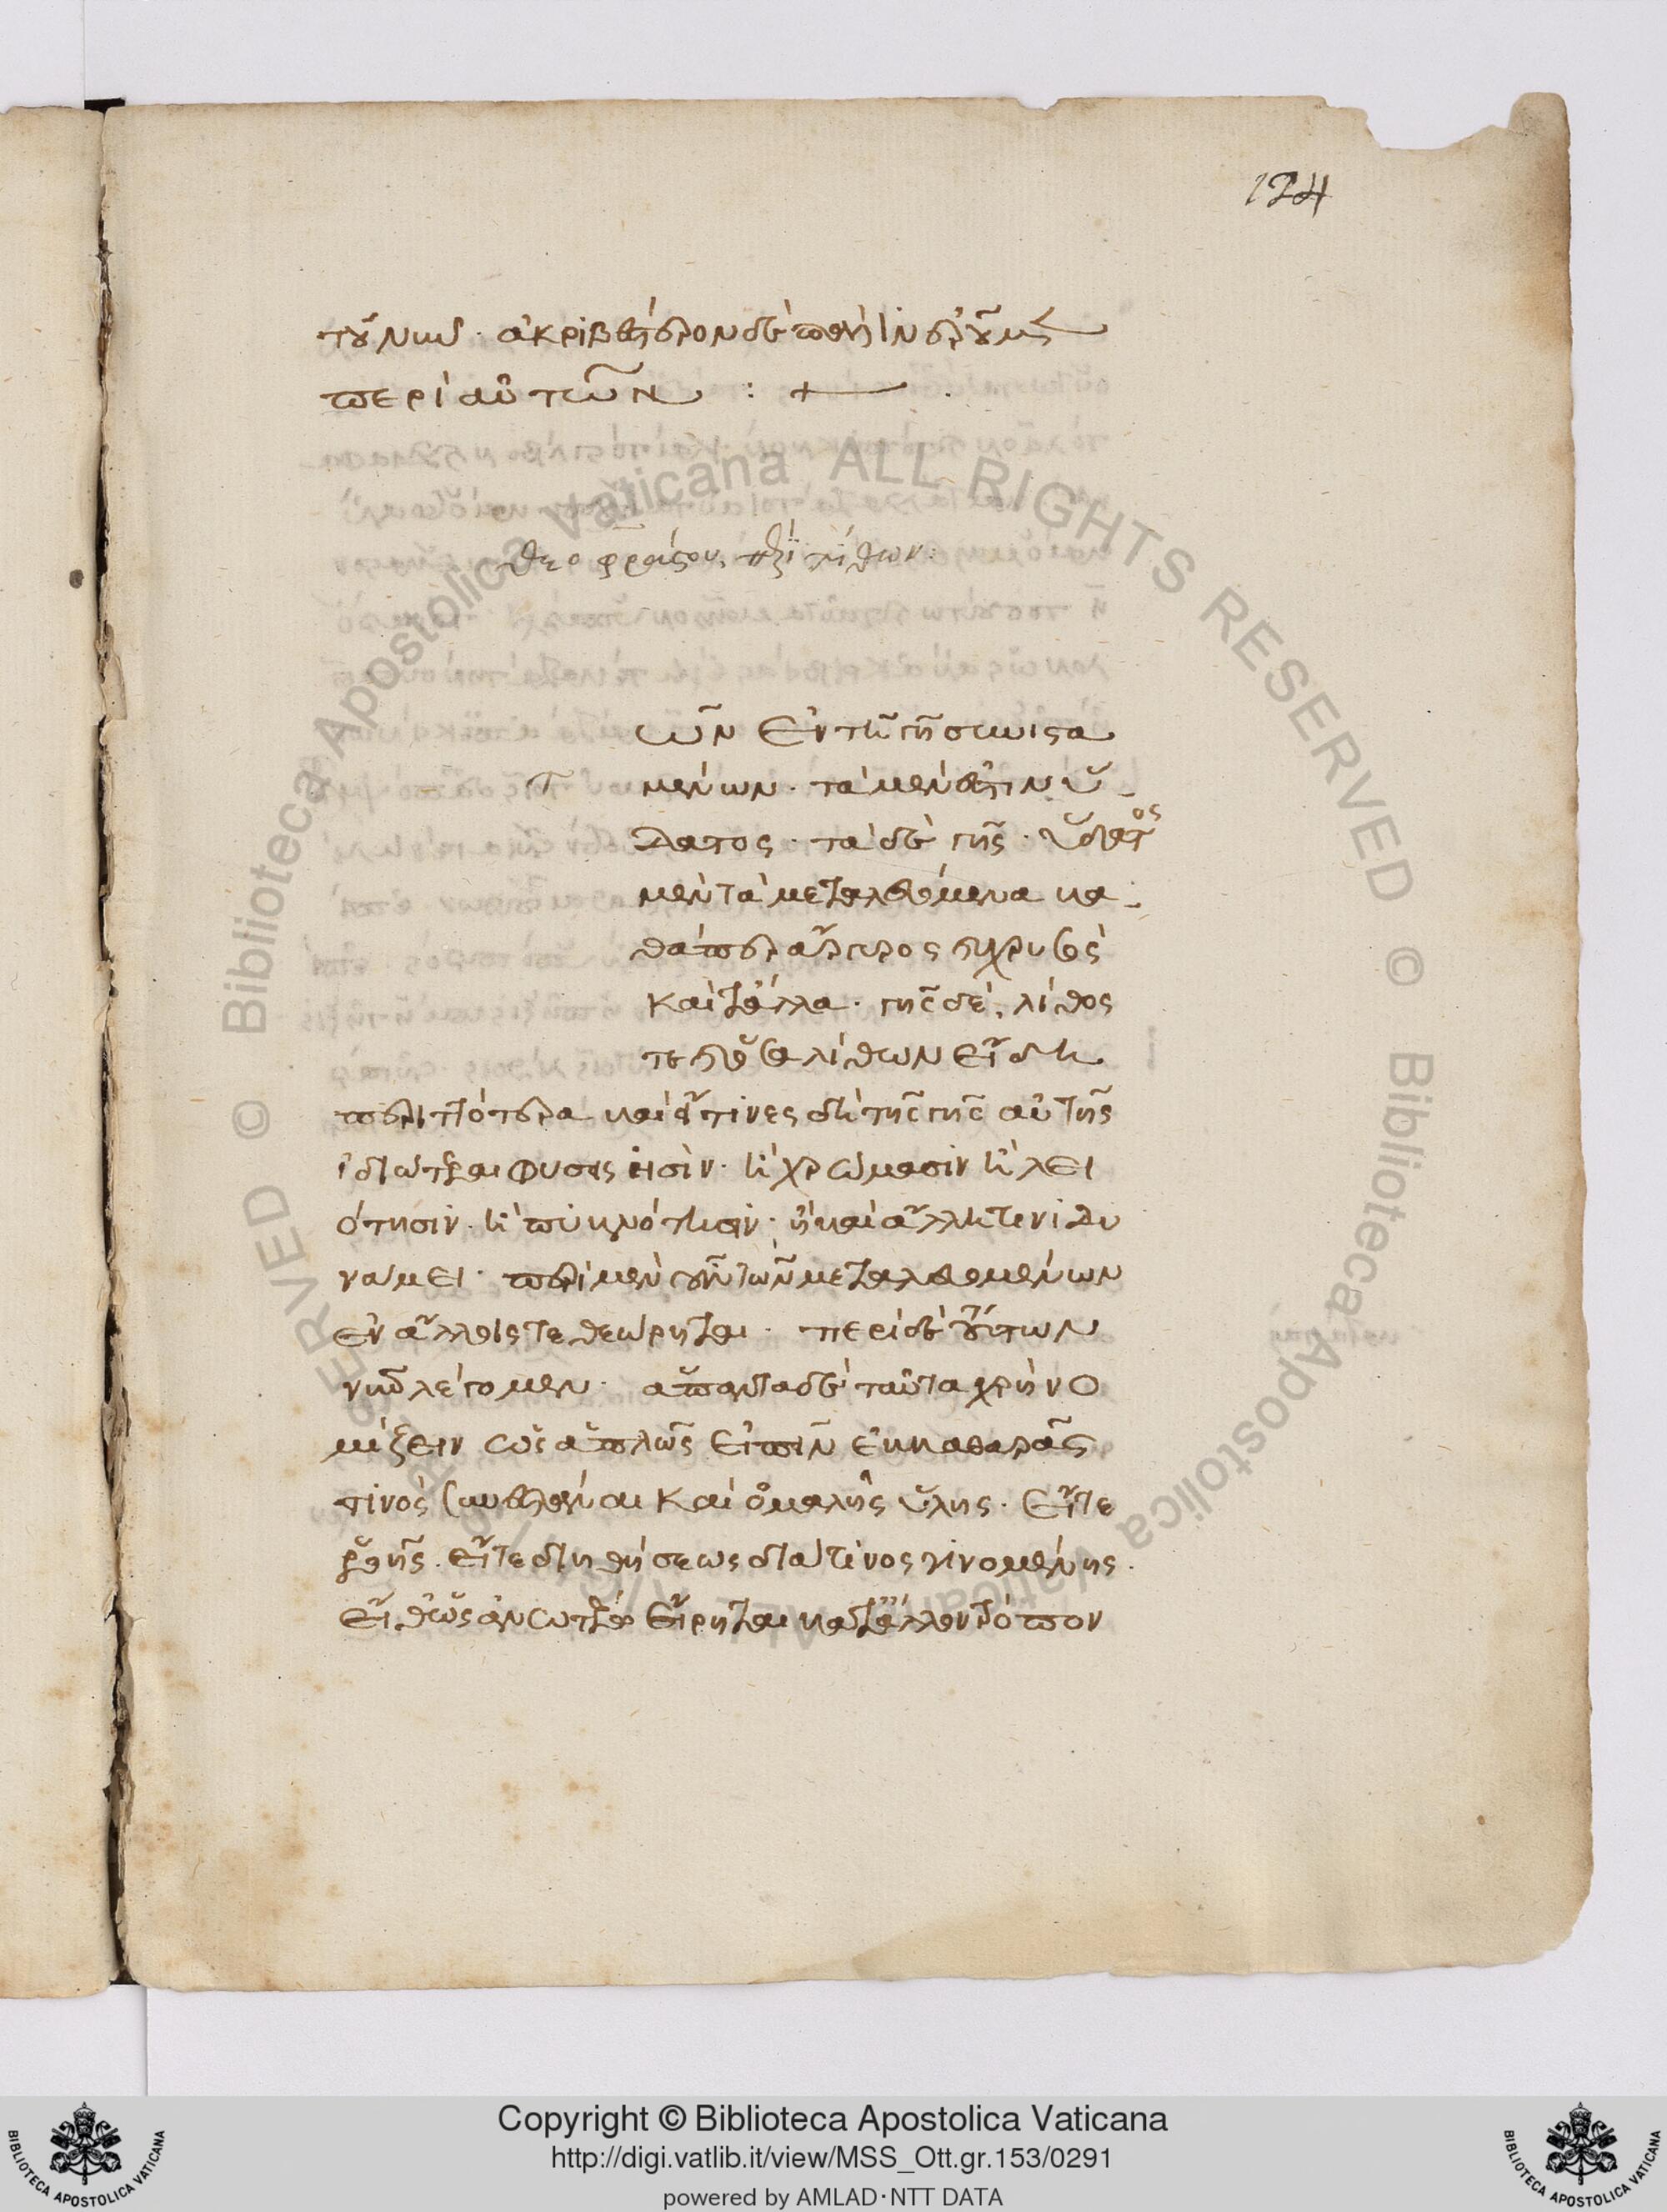 124
τούτων. ἀκριβέστερον δὲ ποθὴ
περὶ αὐτῶν : +
θεοφράστου περὶ λίθων:
τ ῶν ἐν τῆ γῆ συνιστα
μένων. τὰ μέν ἐστιν ὕ
δατος. τὰ δὲ γῆς. ὕδατος
μὲν τὰ μεταλλευόμενα κα
θάπερ ἄργυρος καὶ χρυσὸς
καὶ τἆλλα. γῆς δὲ, λίθος
τε καὶ ὅσα λίθων εἴδη
περιττότερα καὶ εἴ τινες δὴ τῆς γῆς αὐτῆς
ἰδιώτεραι φύσεις εἰσὶν. ἢ χρώμασιν ἢ λει
ότησιν. ἢ πυκνότησιν. ἢ καὶ ἄλλη τινὶ δυ
νάμει. περὶ μὲν οὖν τῶν μεταλλευομένων
ἐν ἄλλοις τεθεώρηται. περὶ δὲ τούτων
νῦν λέγομεν. ἅπαντα δὲ ταῦτα χρὴ νο
μίζειν ὡς ἁπλῶς εἰπεῖν ἐκ καθαρᾶς
τινὸς συνεστάναι καὶ ὁμαλῆς ὕλης. εἴτε
ροῆς. εἴτε διηθήσεως διά τινος γινομένης.
εἴθ' ὡς ἀνωτέρω εἴρηται κατ' ἄλλον τρόπον
© Biblioteca Apostolica Vaticana ALL RIGHTS RESERVED © Biblioteca Apostolica Vaticana ALL RIGHTS RESERVED
Copyright © Biblioteca Apostolica Vaticana
http://digi.vatlib.it/view/MSS_Ott.gr.153/0291
powered by AMLAD·NTT DATA
BIBLIOTECA APOSTOLICA VATICANA
BIBLIOTECA APOSTOLICA VATICANA